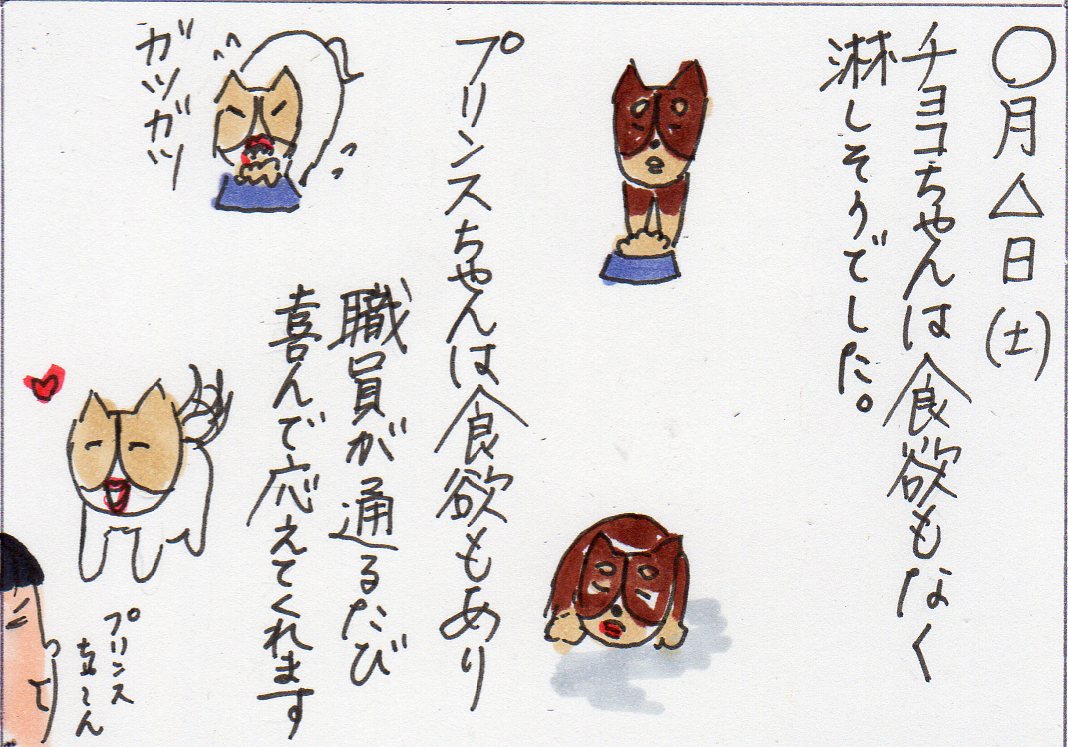 ○月△日(土)
チョコちゃんは食欲もなく
淋しそうでした。
プリンスちゃんは食欲もあり
職員が通るたび
喜んで応えてくれます
ガツガツ
プリンス
ちゃ~ん